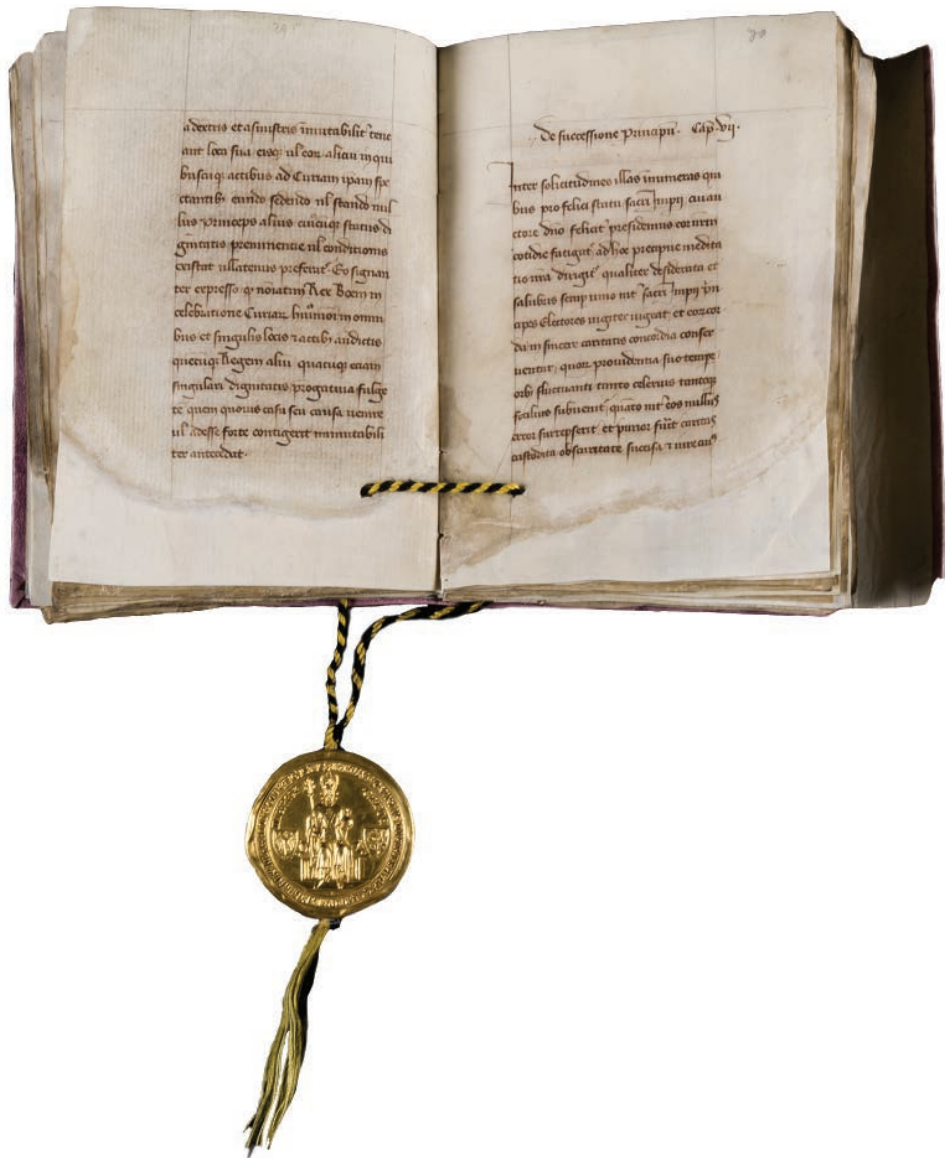 a dextris et a sinistris inmutabilit tene
ant loca sua eisque ul eorum alicui in qui
buscunque actibus ad Curiam ipam spe
ctantibus eundo sedendo ul stando nul
lus princeps alius cuiuscunque status di
gnitatis preminentie ul conditionis
existat ullatenus preferat Eo signan
ter expresso quod noiatim Rex Boem in
celebratione Curiar huiusmodi in omni
bus et singulis locis et actibus antedictis
quecunque Regem alium quacunque eciam
singulari dignitatis prerogativa fulge
te quem quovis casu seu causa venire
ul adesse forte contigerit inmutabili
ter antecedat.
20
De successione Principum. Cap. vij.
Inter solicitudines illas innumeras qui
bus pro felici statu sacri Impii cui au
ctore dno felicit presidemus cor nrm
cotidie fatigat ad hoc precipue medita
tio nra dirigit qualiter desiderata et
salubris semp unio int sacri Impii prin
cipes Electores iugiter vigeat et eor cor
da in sincere caritatis concordia conser
ventur, quor providentia suo tempe
orbi fluctuanti tanto celerius tantoque
facilius subvenit quanto int eos nullus
error surrepserit et purior fuit caritas
custodita obscuritate succisa et iure cuius